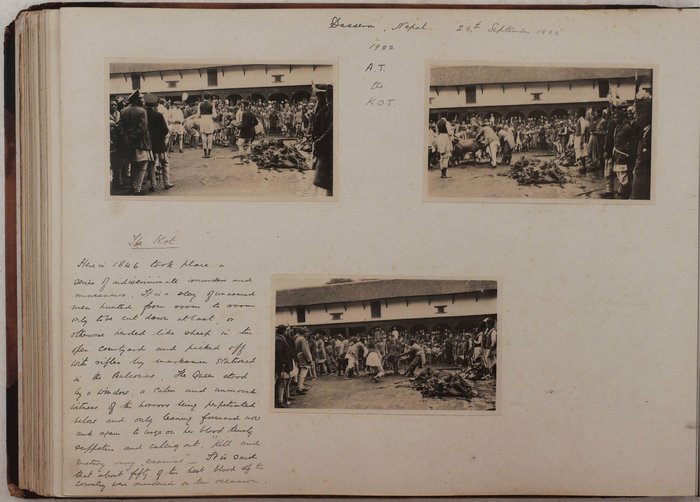 Dassera, Nepal. 29th September 1932
1902
A.T.
the
KOT.
The Kot
Here in 1846 took place a
series of indiscriminate murders and
massacres. It is a story of unarmed
men hunted from room to room
only to be cut down at last, or
otherwise herded like sheep in the
open courtyard and picked off
with rifles by marksmen stationed
in the Balconies. The Queen stood
by a window, a calm and unmoved
witness of the horrors being perpetrated
below and only leaning forward now
and again to urge on her blood thirsty
supporters and calling out "Kill and
destroy my enemies" - It is said
that about fifty of the best blood of the
country were murdered on this occasion